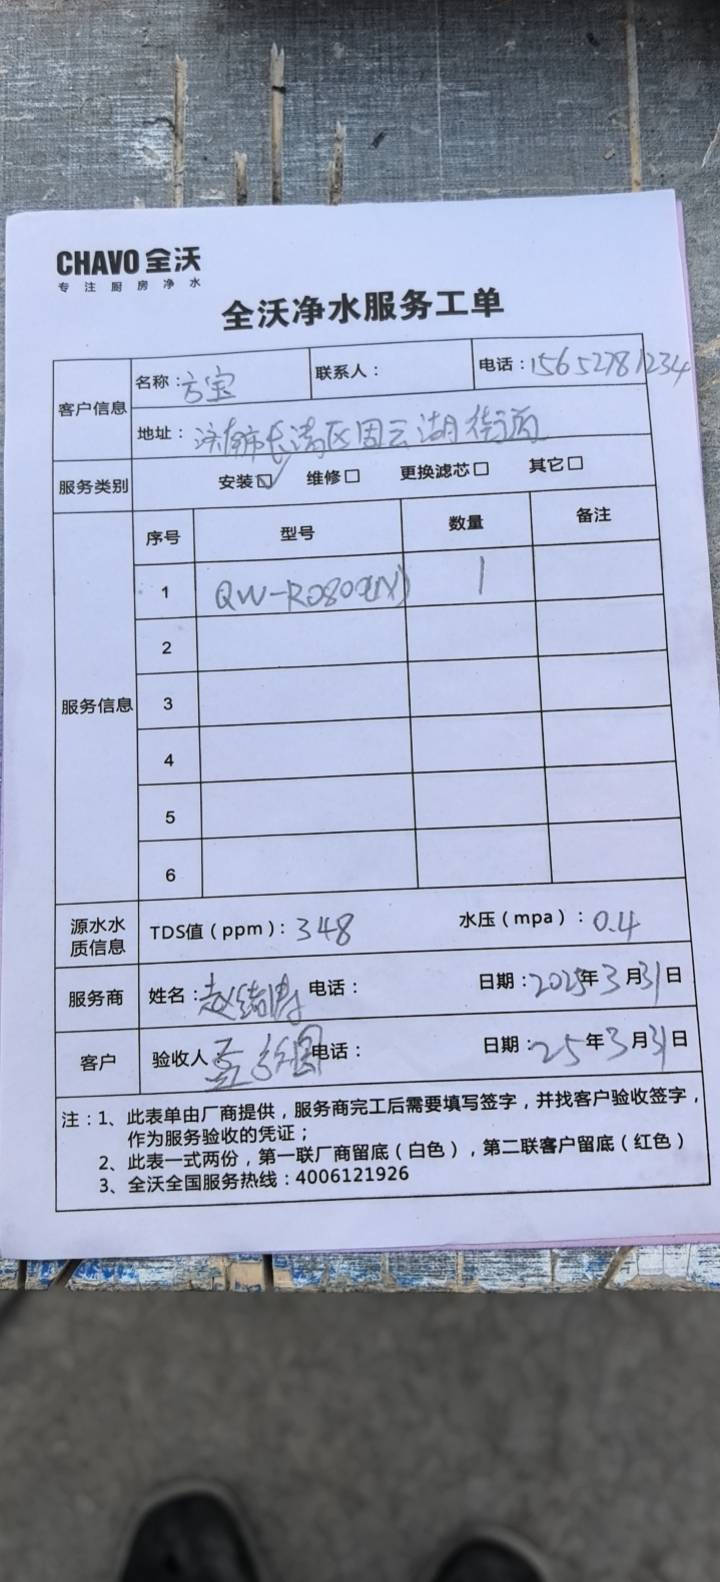 CHAVO 全沃
专注厨房净水
全沃净水服务工单
客户信息
名称：方宝 联系人： 电话：15652781234
地址：济南市长清区周云湖街道
服务类别 安装☑ 维修□ 更换滤芯□ 其它□
服务信息
序号 型号 数量 备注
1 QW-RO800(N) 1
2
3
4
5
6
源水水质信息 TDS值（ppm）：348 水压（mpa）：0.4
服务商 姓名：赵绪涛 电话： 日期：2025年3月31日
客户 验收人 电话： 日期：25年3月31日
注：1、此表单由厂商提供，服务商完工后需要填写签字，并找客户验收签字，
作为服务验收的凭证；
2、此表一式两份，第一联厂商留底（白色），第二联客户留底（红色）
3、全沃全国服务热线：4006121926